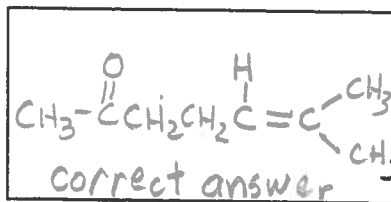 O H
CH₃-CCH₂CH₂C=C CH₃
CH
correct answer